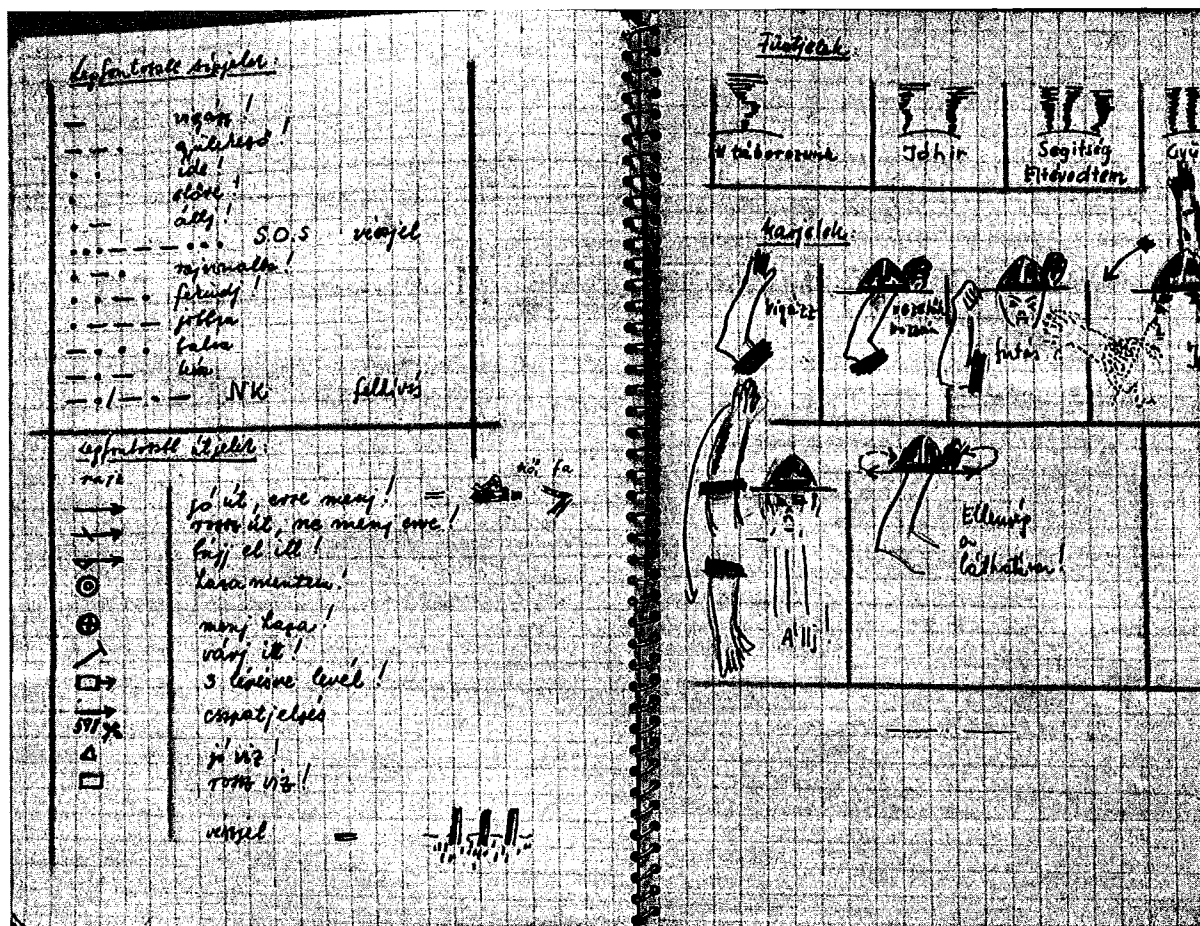 Legfontosabb sípjelek:
vigyázz!
gyülekező!
ide!
előre!
állj!
S.O.S vészjel
rajvonalba!
fordulj!
jobbra
balra
NK felhívás
Legfontosabb útjelek:
rajz
jó út, erre menj! = kő, fa
rossz út, ne menj erre!
bújj el itt!
haza mentem!
menj haza!
várj itt!
3 lépésre levél!
csapatjelzés
jó víz!
rossz víz!
vészjel =
Füstjelek:
Itt táborozunk
Jó hír
Segitség
Eltévedtem
Karjelek:
vigyázz
futás
Állj!
Ellenség
a
láthatáron!